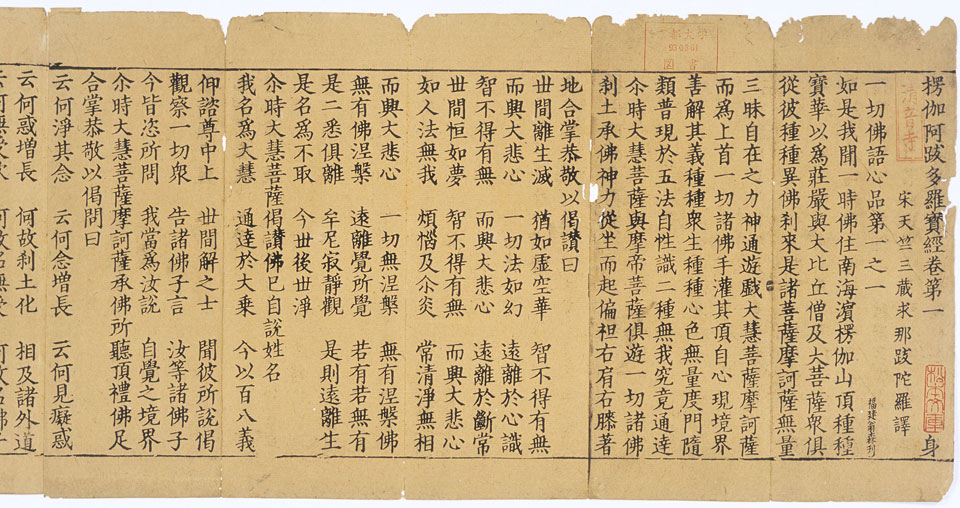 楞伽阿跋多羅寶經卷第一 身
宋天竺三藏求那跋陀羅譯
一切佛語心品第一之一
如是我聞一時佛住南海濱楞伽山頂種種
寶華以爲莊嚴與大比丘僧及大菩薩衆俱
從彼種種異佛刹來是諸菩薩摩訶薩無量
三昧自在之力神通遊戲大慧菩薩摩訶薩
而爲上首一切諸佛手灌其頂自心現境界
善解其義種種衆生種種心色無量度門隨
類普現於五法自性識二種無我究竟通達
尒時大慧菩薩與摩帝菩薩俱遊一切諸佛
刹土承佛神力從坐而起偏袒右肩右膝著
地合掌恭敬以偈讚曰
世間離生滅 猶如虛空華 智不得有無
而興大悲心 一切法如幻 遠離於心識
智不得有無 而興大悲心 遠離於斷常
世間恒如夢 智不得有無 而興大悲心
如人法無我 煩惱及尒炎 常清淨無相
而興大悲心 一切無涅槃 無有涅槃佛
無有佛涅槃 遠離覺所覺 若有若無有
是二悉俱離 牟尼寂靜觀 是則遠離生
是名爲不取 今世後世淨
尒時大慧菩薩偈讚佛已自說姓名
我名爲大慧 通達於大乘 今以百八義
仰諮尊中上 世間解之士 聞彼所說偈
觀察一切衆 告諸佛子言 汝等諸佛子
今皆恣所問 我當爲汝說 自覺之境界
尒時大慧菩薩摩訶薩承佛所聽頂禮佛足
合掌恭敬以偈問曰
云何淨其念 云何念增長 云何見癡惑
云何惑增長 何故刹土化 相及諸外道
都大学
図書